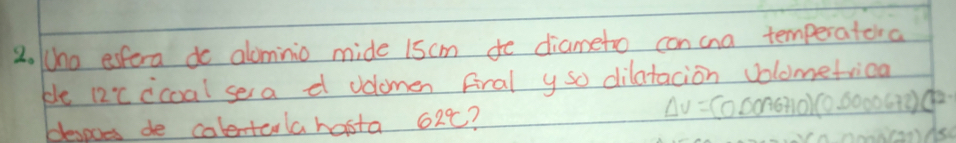 2. Una esfera de alominio mide 15cm de diametro con una temperatura
de 12°C ¿coal sera el volomen final y so dilatación volometrica
despues de calentarla hasta 62°C?
ΔV=(0.0076710)(0.0000672)(